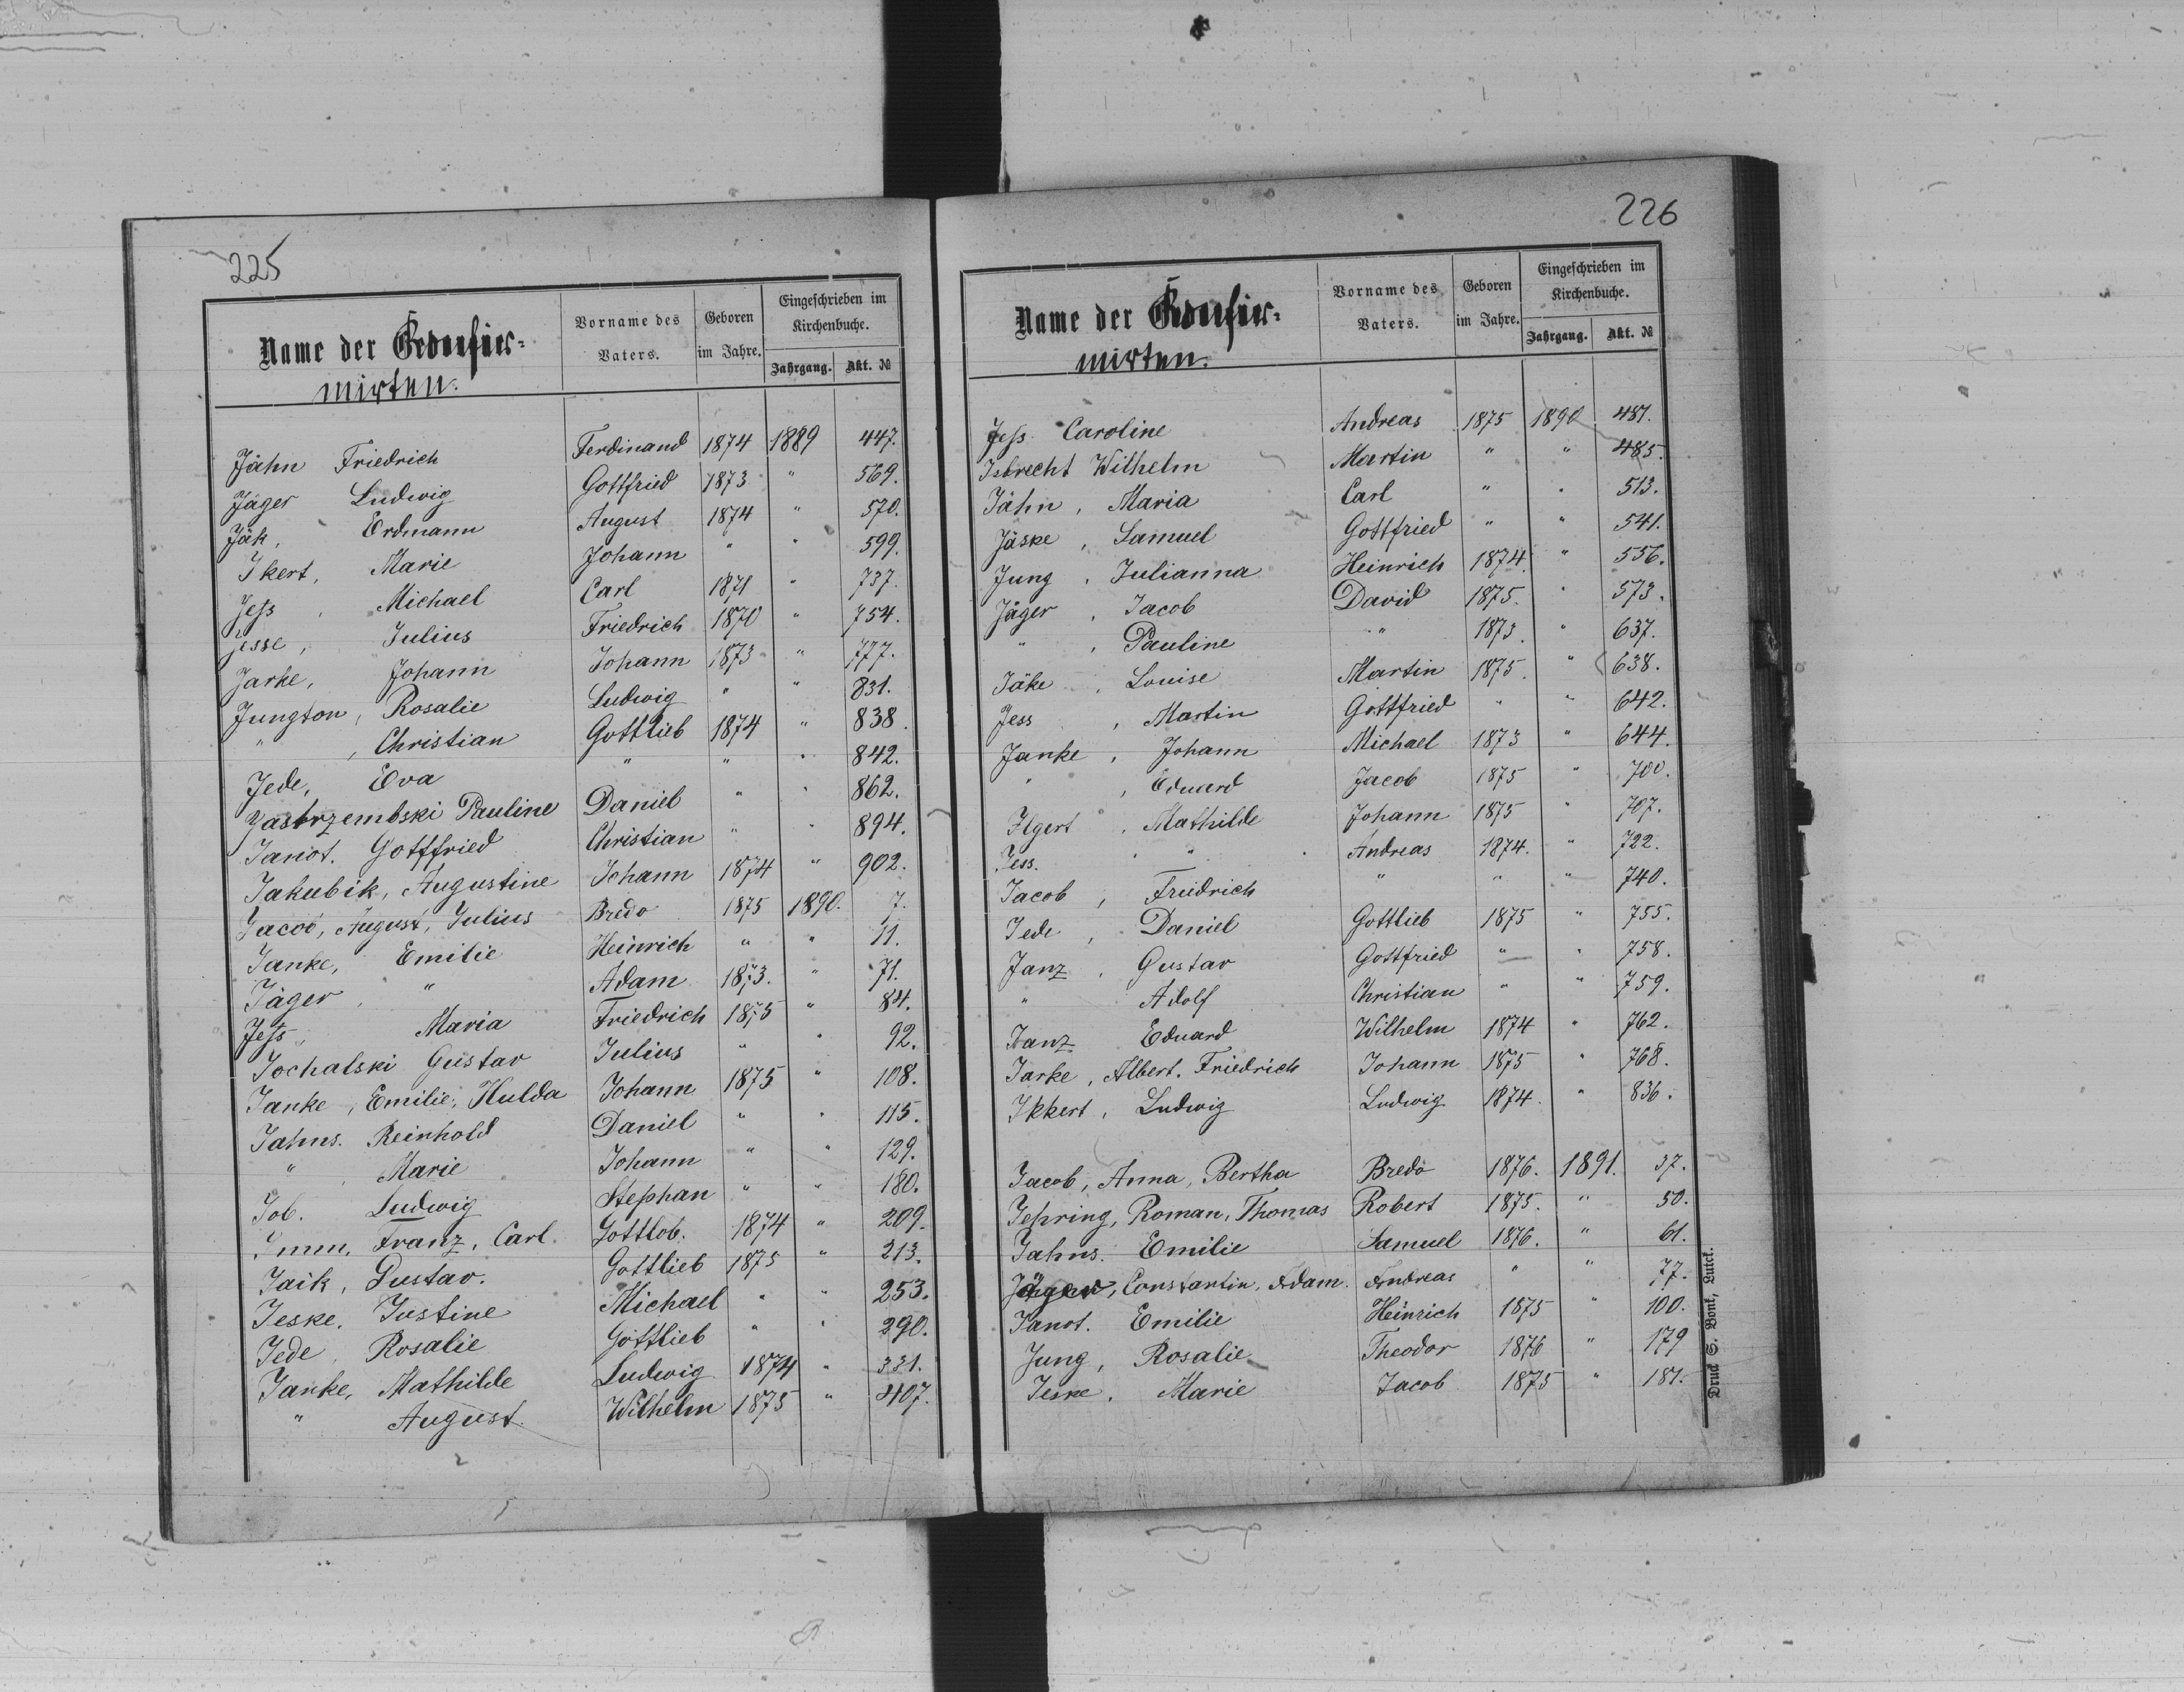 225
Name der Geboufirmirten.
Vorname des Vaters.
Geboren im Jahre.
Eingeschrieben im Kirchenbuche.
Jahrgang. Akt. №
Jähn Friedrich Ferdinand 1874 1889 447.
Jäger Ludwig Gottfried 1873 " 569.
Jäk, Erdmann August 1874 " 570.
Ikert, Marie Johann " " 599.
Jess, Michael Carl 1871 " 737.
Jesse, Julius Friedrich 1870 " 754.
Jarke, Johann Johann 1873 " 777.
Jungton, Rosalie Ludwig " " 831.
" , Christian Gottlieb 1874 " 838.
Jede, Eva " " " 842.
Jastrzembski Pauline Daniel " " 862.
Janot. Gottfried Christian " " 894.
Jakubik, Augustine Johann 1874 " 902.
Jacob, August, Julius Bredo 1875 1890. 7.
Janke, Emilie Heinrich " " 11.
Jäger, " Adam 1873. " 71.
Jess, Maria Friedrich 1875 " 84.
Jochalski Gustav Julius " " 92.
Janke, Emilie, Hulda Johann 1875 " 108.
Jahns. Reinhold Daniel " " 115.
" , Marie Johann " " 129.
Job. Ludwig Stephan " " 180.
Imm, Franz, Carl. Gottlob. 1874 " 209.
Jaik, Gustav. Gottlieb 1875 " 213.
Jeske, Justine Michael " " 253.
Jede, Rosalie Gottlieb " " 290.
Janke, Mathilde Ludwig 1874 " 331.
" August. Wilhelm 1875 " 407.
226
Name der
mirten.
Vorname des Vaters.
Geboren im Jahre.
Eingeschrieben im Kirchenbuche.
Jahrgang. Akt. №
Jess Caroline Andreas 1875 1890 481.
Isbrecht Wilhelm Martin " " 485.
Jähn, Maria Carl " " 513.
Jäske, Samuel Gottfried " " 541.
Jung, Julianna Heinrich 1874. " 556.
Jäger, Jacob David 1875. " 573.
" , Pauline " 1873. " 637.
Jäke, Louise Martin 1875. " 638.
Jess, Martin Gottfried " " 642.
Janke, Johann Michael 1873 " 644.
" , Eduard Jacob 1875 " 700.
Ilgert, Mathilde Johann 1875 " 707.
Jess. " Andreas 1874. " 722.
Jacob, Friedrich " " " 740.
Jede, Daniel Gottlieb 1875 " 755.
Janz, Gustav Gottfried " " 758.
" Adolf Christian " " 759.
Janz Eduard Wilhelm 1874 " 762.
Jarke, Albert. Friedrich Johann 1875 " 768.
Ikkert, Ludwig Ludwig 1874. " 836.
Jacob, Anna, Bertha Bredo 1876. 1891. 37.
Jehring, Roman, Thomas Robert 1875. " 50.
Jahns. Emilie Samuel 1876. " 61.
Jäger, Constantin, Adam. Andreas " " 77.
Janot. Emilie Heinrich 1875 " 100.
Jung, Rosalie Theodor 1876 " 179
Jeske, Marie Jacob 1875 " 181.
Druck S. Bonk, Luck.